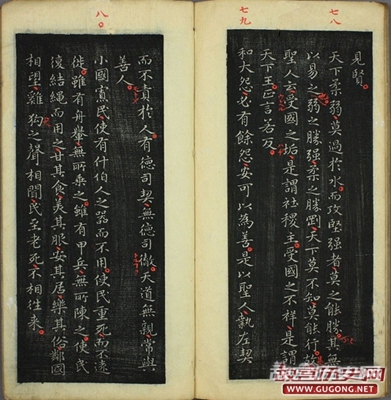 七八
見賢
天下柔弱莫過於水而攻堅強者莫之能勝其無
以易之弱之勝強柔之勝剛天下莫不知莫能行故
聖人云受國之垢是謂社稷主受國之不祥是謂
天下王正言若反
七九
和大怨必有餘怨安可以為善是以聖人執左契
而不責於人有德司契無德司徹天道無親常與
善人
八〇
小國寡民使有什伯人之器而不用使民重死而不遠
徙雖有舟轝無所乘之雖有甲兵無所陳之使民
復結繩而用之甘其食美其服安其居樂其俗鄰國
相望雞狗之聲相聞民至老死不相往来
WWW.GUGONG.NET